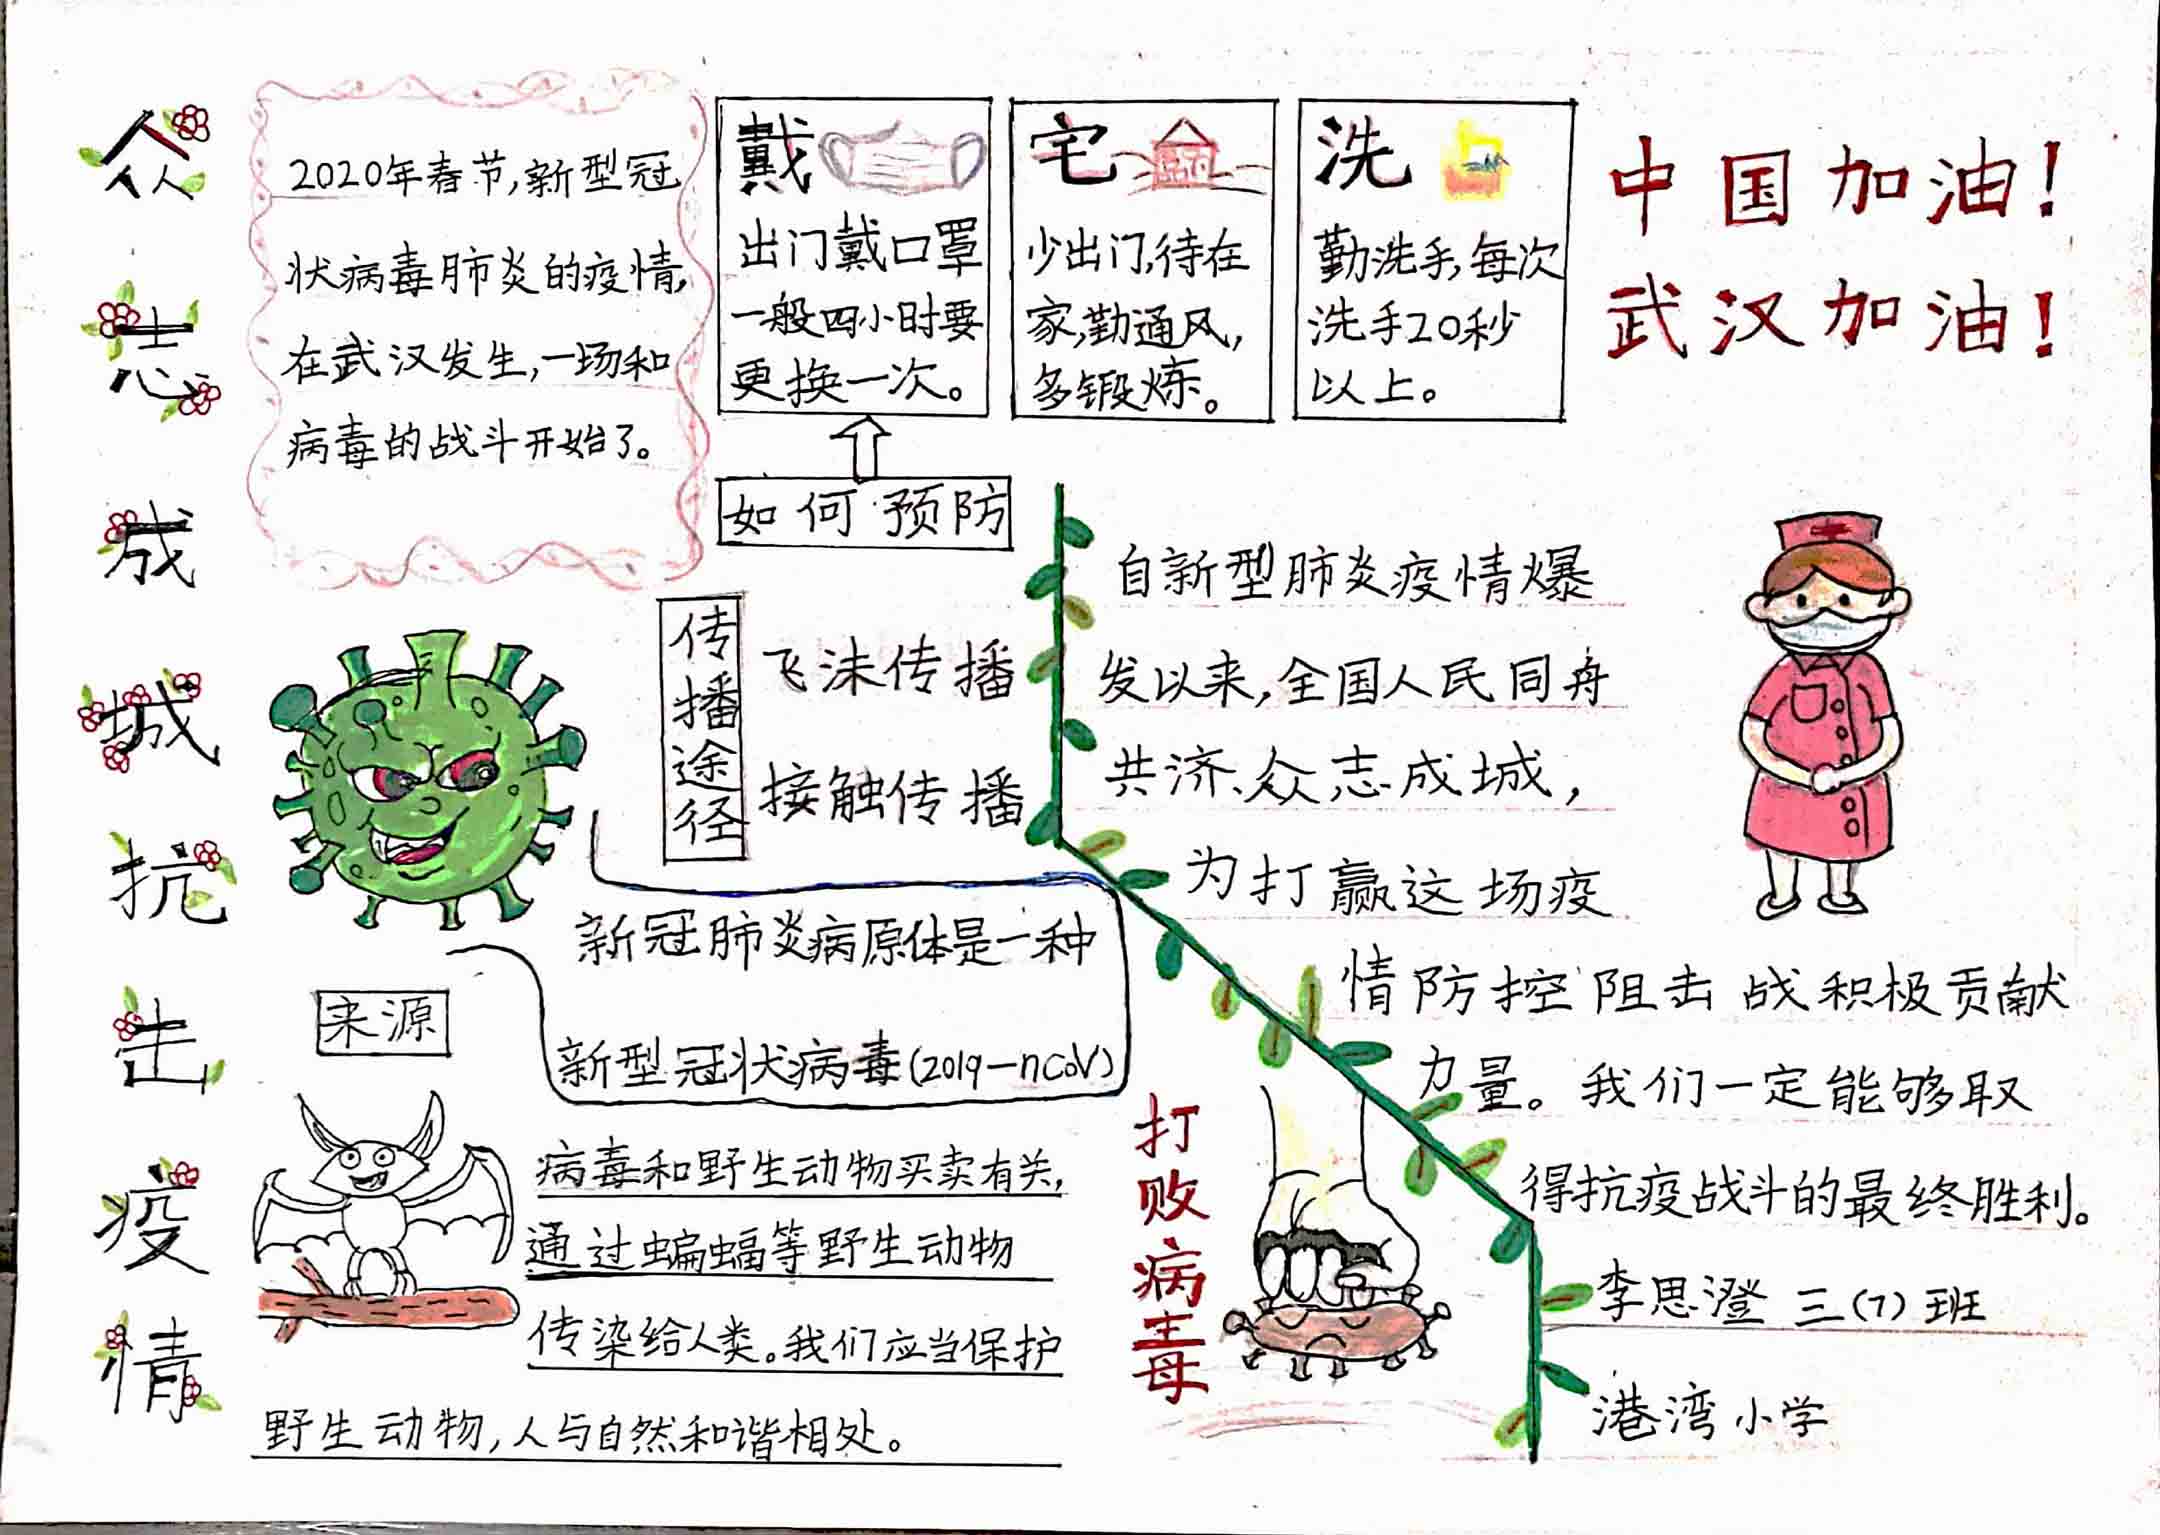 众志成城抗击疫情
2020年春节,新型冠
状病毒肺炎的疫情,
在武汉发生,一场和
病毒的战斗开始了。
戴
出门戴口罩
一般四小时要
更换一次。
宅
少出门,待在
家,勤通风,
多锻炼。
洗
勤洗手,每次
洗手20秒
以上。
中国加油!
武汉加油!
如何预防
传播途径
飞沫传播
接触传播
新冠肺炎病原体是一种
新型冠状病毒(2019-nCoV)
来源
病毒和野生动物买卖有关,
通过蝙蝠等野生动物
传染给人类。我们应当保护
野生动物,人与自然和谐相处。
打败病毒
自新型肺炎疫情爆
发以来,全国人民同舟
共济、众志成城,
为打赢这场疫
情防控阻击战积极贡献
力量。我们一定能够取
得抗疫战斗的最终胜利。
李思澄 三(7)班
港湾小学